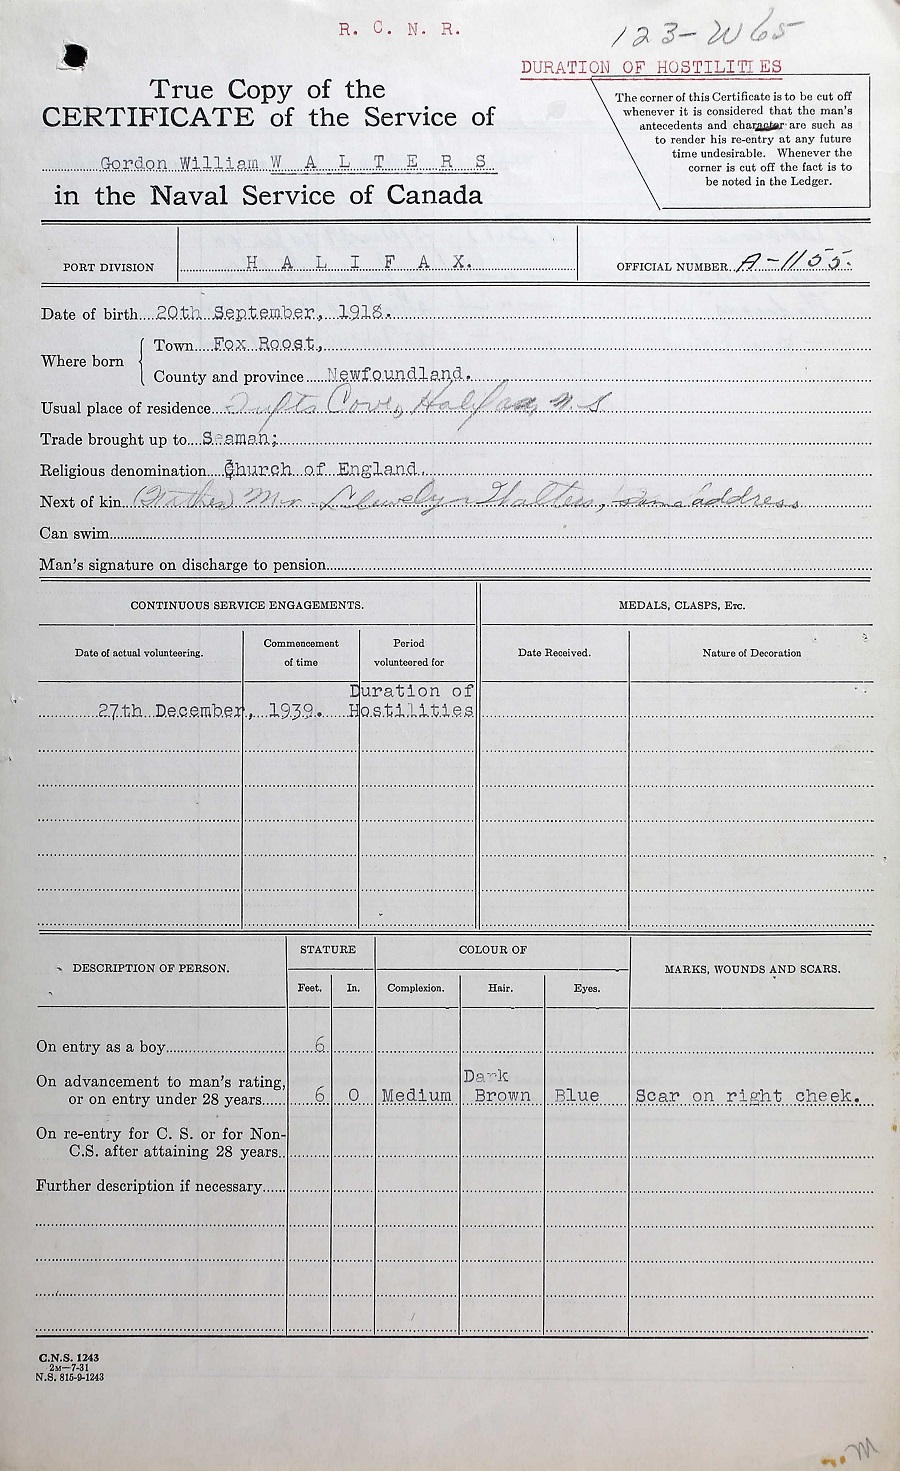 R. C. N. R.
123-W65
DURATION OF HOSTILITIES
True Copy of the
CERTIFICATE of the Service of
Gordon William W A L T E R S
in the Naval Service of Canada
The corner of this Certificate is to be cut off
whenever it is considered that the man's
antecedents and character are such as
to render his re-entry at any future
time undesirable. Whenever the
corner is cut off the fact is to
be noted in the Ledger.
PORT DIVISION H A L I F A X. OFFICIAL NUMBER A-1155.
Date of birth 20th September, 1918.
Where born
Town Fox Roost,
County and province Newfoundland.
Usual place of residence Tufts Cove, Halifax, N.S
Trade brought up to Seaman;
Religious denomination Church of England.
Next of kin (Father) Mr. Llewelyn Walters, same address
Can swim
Man's signature on discharge to pension
CONTINUOUS SERVICE ENGAGEMENTS. MEDALS, CLASPS, ETC.
Date of actual volunteering. Commencement of time Period volunteered for Date Received. Nature of Decoration
Duration of
27th December, 1939. Hostilities
DESCRIPTION OF PERSON. STATURE COLOUR OF MARKS, WOUNDS AND SCARS.
Feet. In. Complexion. Hair. Eyes.
On entry as a boy 6
On advancement to man's rating, Dark
or on entry under 28 years 6 0 Medium Brown Blue Scar on right cheek.
On re-entry for C. S. or for Non-
C.S. after attaining 28 years
Further description if necessary
C.N.S. 1243
2M—7-31
N.S. 815-9-1243
M